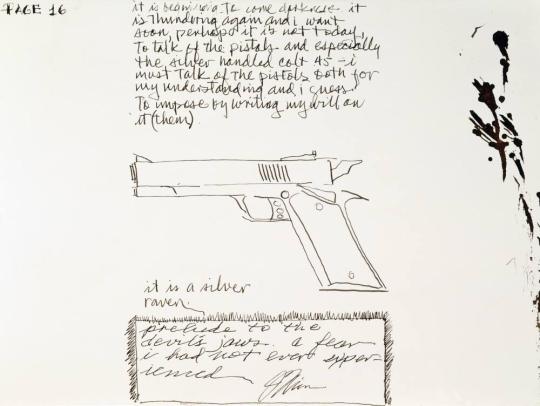 PAGE 16
it is beginning to come darkness it
is thundring again and i want
soon, perhaps if is not today,
To talk of the pistols and especially
the silver handled colt 45 – i
must talk of the pistols both for
my understanding and i guess
To impose by writing my will on
it (them).
it is a silver
raven.
prelude to the
devil's jaws. a fear
i had not ever exper-
ienced